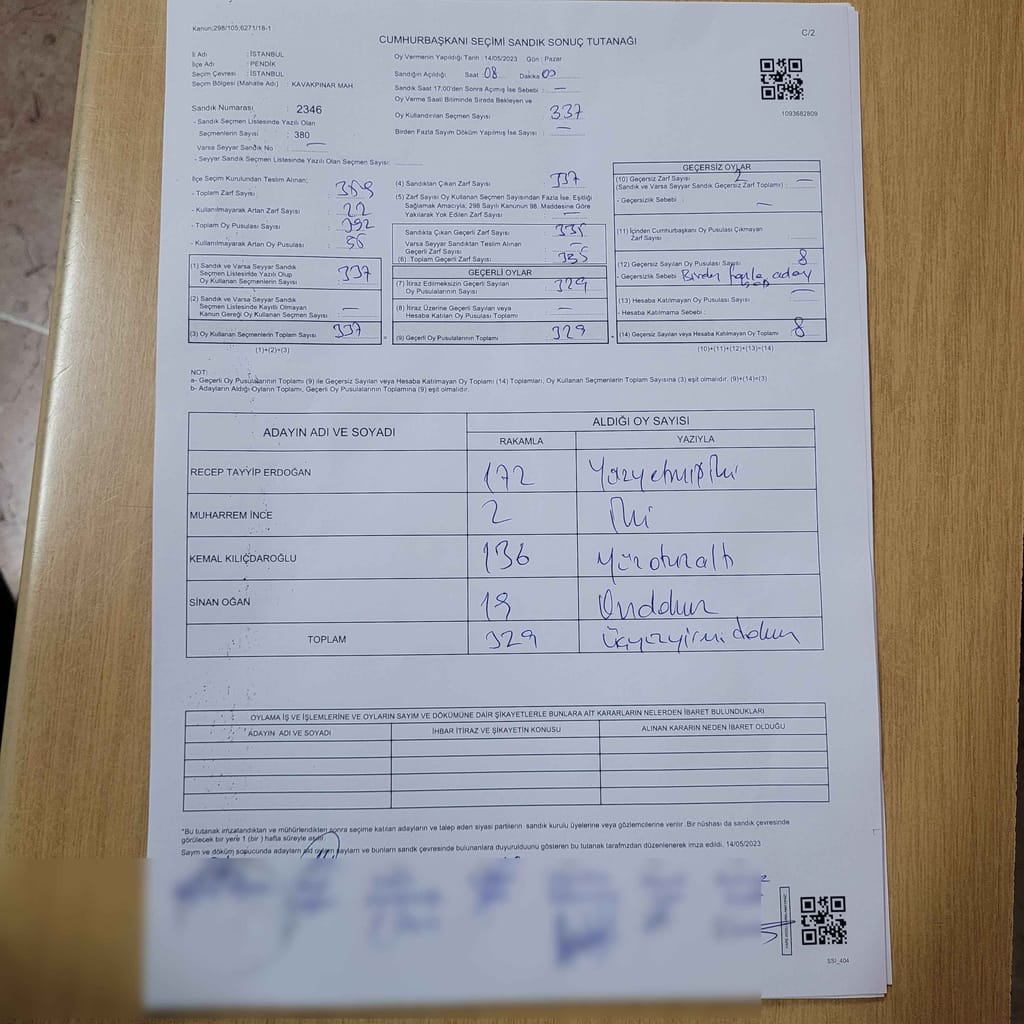 Kanun;298/105;6271/18-1
C/2
CUMHURBAŞKANI SEÇİMİ SANDIK SONUÇ TUTANAĞI
İl Adı : İSTANBUL
İlçe Adı : PENDİK
Seçim Çevresi : İSTANBUL
Seçim Bölgesi (Mahalle Adı) : KAVAKPINAR MAH
Sandık Numarası : 2346
- Sandık Seçmen Listesinde Yazılı Olan
Seçmenlerin Sayısı : 380
Varsa Seyyar Sandık No : —
- Seyyar Sandık Seçmen Listesinde Yazılı Olan Seçmen Sayısı:
Oy Vermenin Yapıldığı Tarih : 14/05/2023 Gün : Pazar
Sandığın Açıldığı Saat 08 Dakika 00
Sandık Saat 17.00'den Sonra Açılmış İse Sebebi : —
Oy Verme Saati Bitiminde Sırada Bekleyen ve
Oy Kullandırılan Seçmen Sayısı : 337
Birden Fazla Sayım Döküm Yapılmış İse Sayısı : —
1093682809
İlçe Seçim Kurulundan Teslim Alınan;
- Toplam Zarf Sayısı :
- Kullanılmayarak Artan Zarf Sayısı : 22
- Toplam Oy Pusulası Sayısı : 392
- Kullanılmayarak Artan Oy Pusulası :
(1) Sandık ve Varsa Seyyar Sandık
Seçmen Listesinde Yazılı Olup
Oy Kullanan Seçmenlerin Sayısı : 337
(2) Sandık ve Varsa Seyyar Sandık
Seçmen Listesinde Kayıtlı Olmayan
Kanun Gereği Oy Kullanan Seçmen Sayısı : —
(3) Oy Kullanan Seçmenlerin Toplam Sayısı : 337
(1)+(2)=(3)
(4) Sandıktan Çıkan Zarf Sayısı : 337
(5) Zarf Sayısı Oy Kullanan Seçmen Sayısından Fazla İse, Eşitliği
Sağlamak Amacıyla; 298 Sayılı Kanunun 98. Maddesine Göre
Yakılarak Yok Edilen Zarf Sayısı : —
Sandıkta Çıkan Geçerli Zarf Sayısı : 335
Varsa Seyyar Sandıktan Teslim Alınan
Geçerli Zarf Sayısı : —
(6) Toplam Geçerli Zarf Sayısı : 335
GEÇERLİ OYLAR
(7) İtiraz Edilmeksizin Geçerli Sayılan
Oy Pusulalarının Sayısı : 329
(8) İtiraz Üzerine Geçerli Sayılan veya
Hesaba Katılan Oy Pusulası Toplamı : —
(9) Geçerli Oy Pusulalarının Toplamı : 329
GEÇERSİZ OYLAR
(10) Geçersiz Zarf Sayısı 2
(Sandık ve Varsa Seyyar Sandık Geçersiz Zarf Toplamı) : —
- Geçersizlik Sebebi : —
(11) İçinden Cumhurbaşkanı Oy Pusulası Çıkmayan
Zarf Sayısı :
(12) Geçersiz Sayılan Oy Pusulası Sayısı : 8
- Geçersizlik Sebebi : Birden fazla aday
(13) Hesaba Katılmayan Oy Pusulası Sayısı : —
- Hesaba Katılmama Sebebi :
(14) Geçersiz Sayılan veya Hesaba Katılmayan Oy Toplamı : 8
(10)+(11)+(12)+(13)=(14)
NOT:
a- Geçerli Oy Pusulalarının Toplamı (9) ile Geçersiz Sayılan veya Hesaba Katılmayan Oy Toplamı (14) Toplamları, Oy Kullanan Seçmenlerin Toplam Sayısına (3) eşit olmalıdır. (9)+(14)=(3)
b- Adayların Aldığı Oyların Toplamı, Geçerli Oy Pusulalarının Toplamına (9) eşit olmalıdır.
ADAYIN ADI VE SOYADI
ALDIĞI OY SAYISI
RAKAMLA YAZIYLA
RECEP TAYYİP ERDOĞAN 172 Yüzyetmişiki
MUHARREM İNCE 2 İki
KEMAL KILIÇDAROĞLU 136 Yüzotuzaltı
SİNAN OĞAN 19 Ondokuz
TOPLAM 329 Üçyüzyirmidokuz
OYLAMA İŞ VE İŞLEMLERİNE VE OYLARIN SAYIM VE DÖKÜMÜNE DAİR ŞİKAYETLERLE BUNLARA AİT KARARLARIN NELERDEN İBARET BULUNDUKLARI
ADAYIN ADI VE SOYADI İHBAR İTİRAZ VE ŞİKAYETİN KONUSU ALINAN KARARIN NEDEN İBARET OLDUĞU
*Bu tutanak imzalandıktan ve mühürlendikten sonra seçime katılan adayların ve talep eden siyasi partilerin sandık kurulu üyelerine veya gözlemcilerine verilir. Bir nüshası da sandık çevresinde
görülecek bir yere 1 (bir) hafta süreyle asılır.
Sayım ve döküm sonucunda adayların aldığı oyların sayıların ve bunların sandık çevresinde bulunanlara duyurulduğunu gösteren bu tutanak tarafımızdan düzenlenerek imza edildi. 14/05/2023
SSİ_404